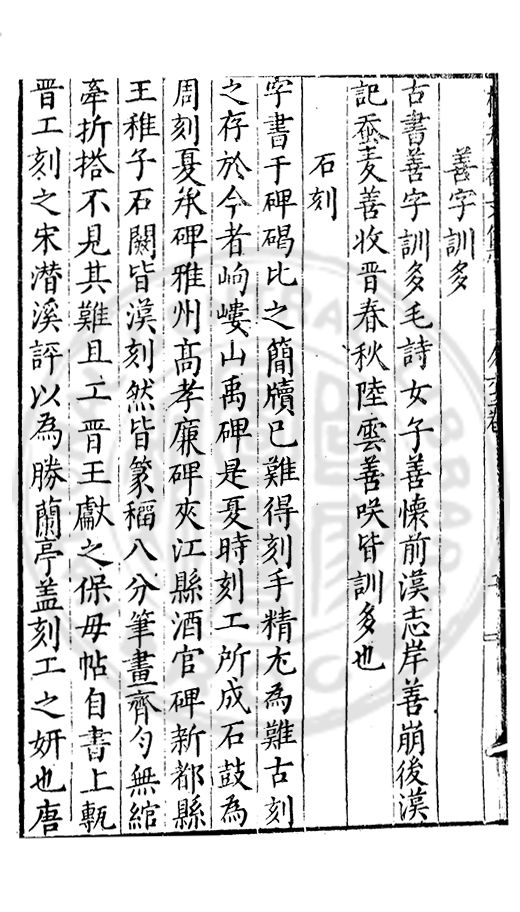 善字訓多
古書善字訓多毛詩女子善懷前漢志岸善崩後漢
記蚕麦善收晋春秋陸雲善咲皆訓多也
石刻
字書于碑碣比之簡牘已難得刻手精尤為難古刻
之存於今者岣嶁山禹碑是夏時刻工所成石鼓為
周刻夏承碑雅州髙孝廉碑夾江縣酒官碑新都縣
王稚子石闕皆漢刻然皆篆稻八分筆畫齊勻無綰
牽折搭不見其難且工晋王獻之保毋帖自書上甎
晋工刻之宋潜溪評以為勝蘭亭盖刻工之妍也唐